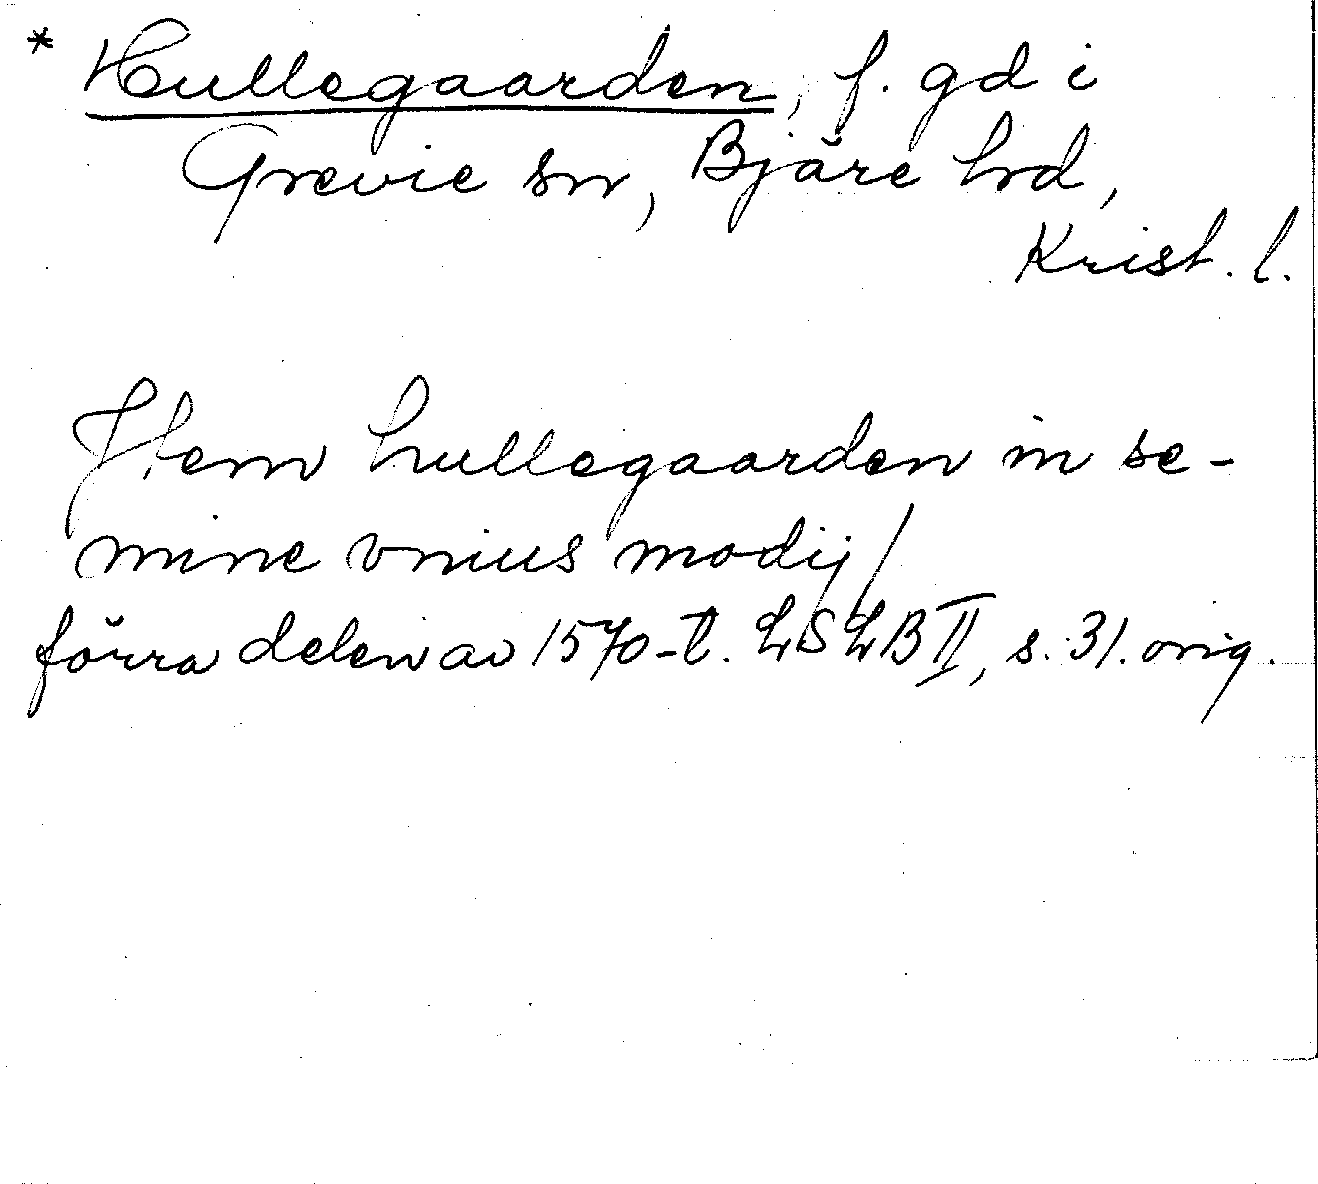 * Hullegaarden, f. gd i
Grevie sn, Bjäre hd,
Krist. l.
Item hullegaarden in se-
mine vnius modij/
förra delen av 1570-t. LSLB II, s. 31. orig.